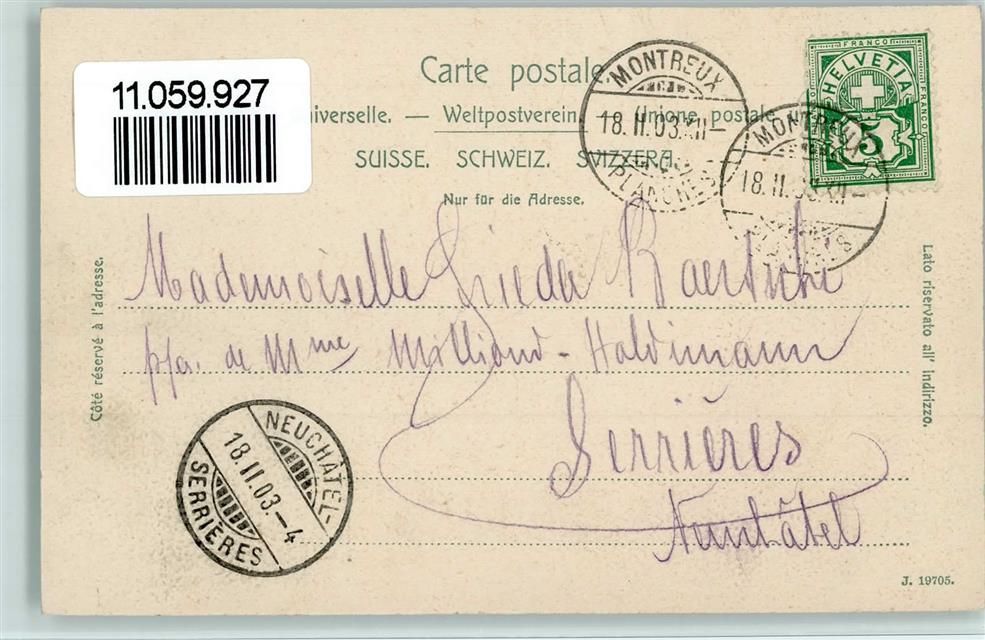 11.059.927
Carte postale
iverselle. — Weltpostverein. — Unione postale
SUISSE. SCHWEIZ. SVIZZERA.
Nur für die Adresse.
FRANCO
HELVETIA
FRANCO
FRANCO
5
MONTREUX
18.II.03.XII–
PLANCHES
MONTREUX
18.II.03.XII–
PLANCHES
Côté réservé à l'adresse.
Lato riservato all' indirizzo.
Mademoiselle Frieda
p/a. de Mme - Haldimann
Serrières
Neuchâtel
NEUCHÂTEL-
18.II.03.–4
SERRIÈRES
J. 19705.